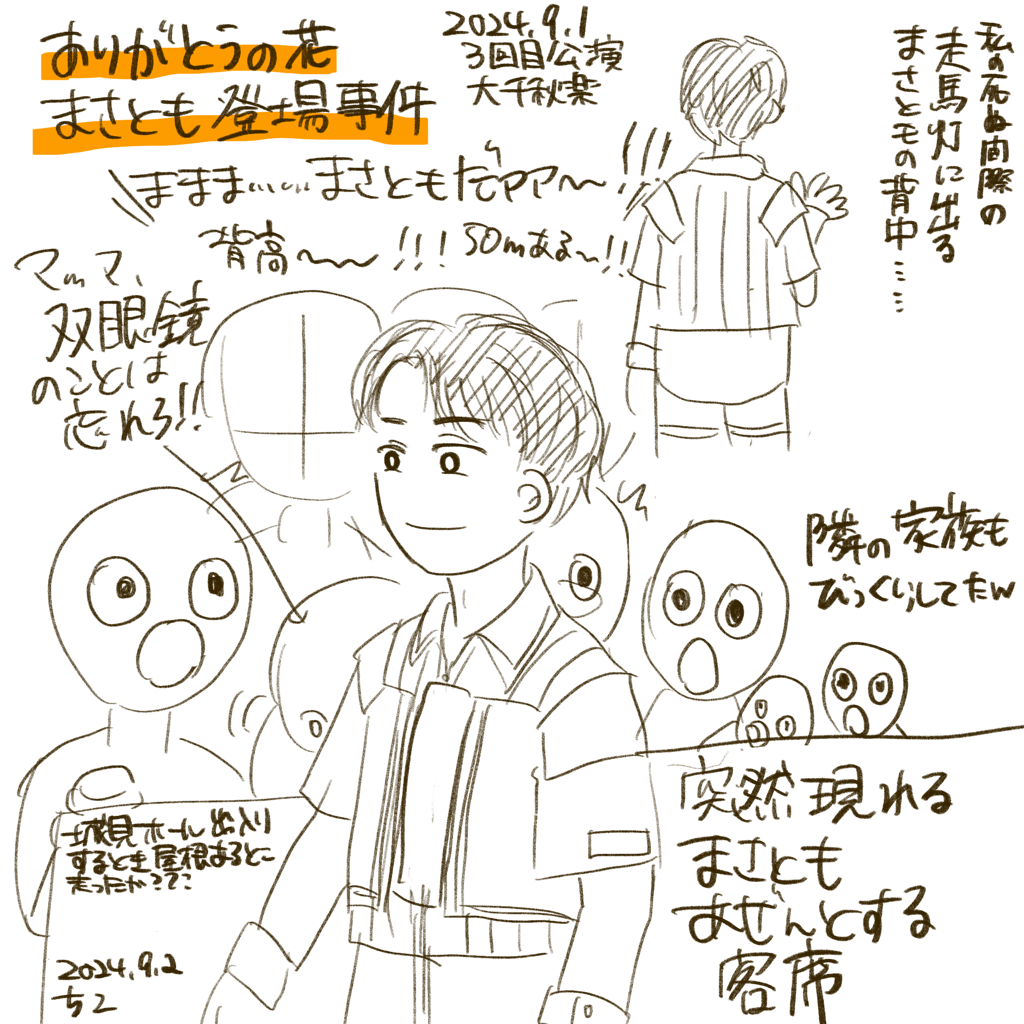 ありがとうの花
まさとも登場事件
2024.9.1
3回目公演
大千秋楽
私の死ぬ間際の
走馬灯に出る
まさともの背中……
ままま……まさともだアア〜!!!
背高〜〜!!!
50mある〜!!
マッマ、
双眼鏡
のことは
忘れろ!!
隣の家族も
びっくりしてたw
突然現れる
まさとも
あぜんとする
客席
城見ホール出入り
するとき屋根あると〜
2024.9.2
ちこ